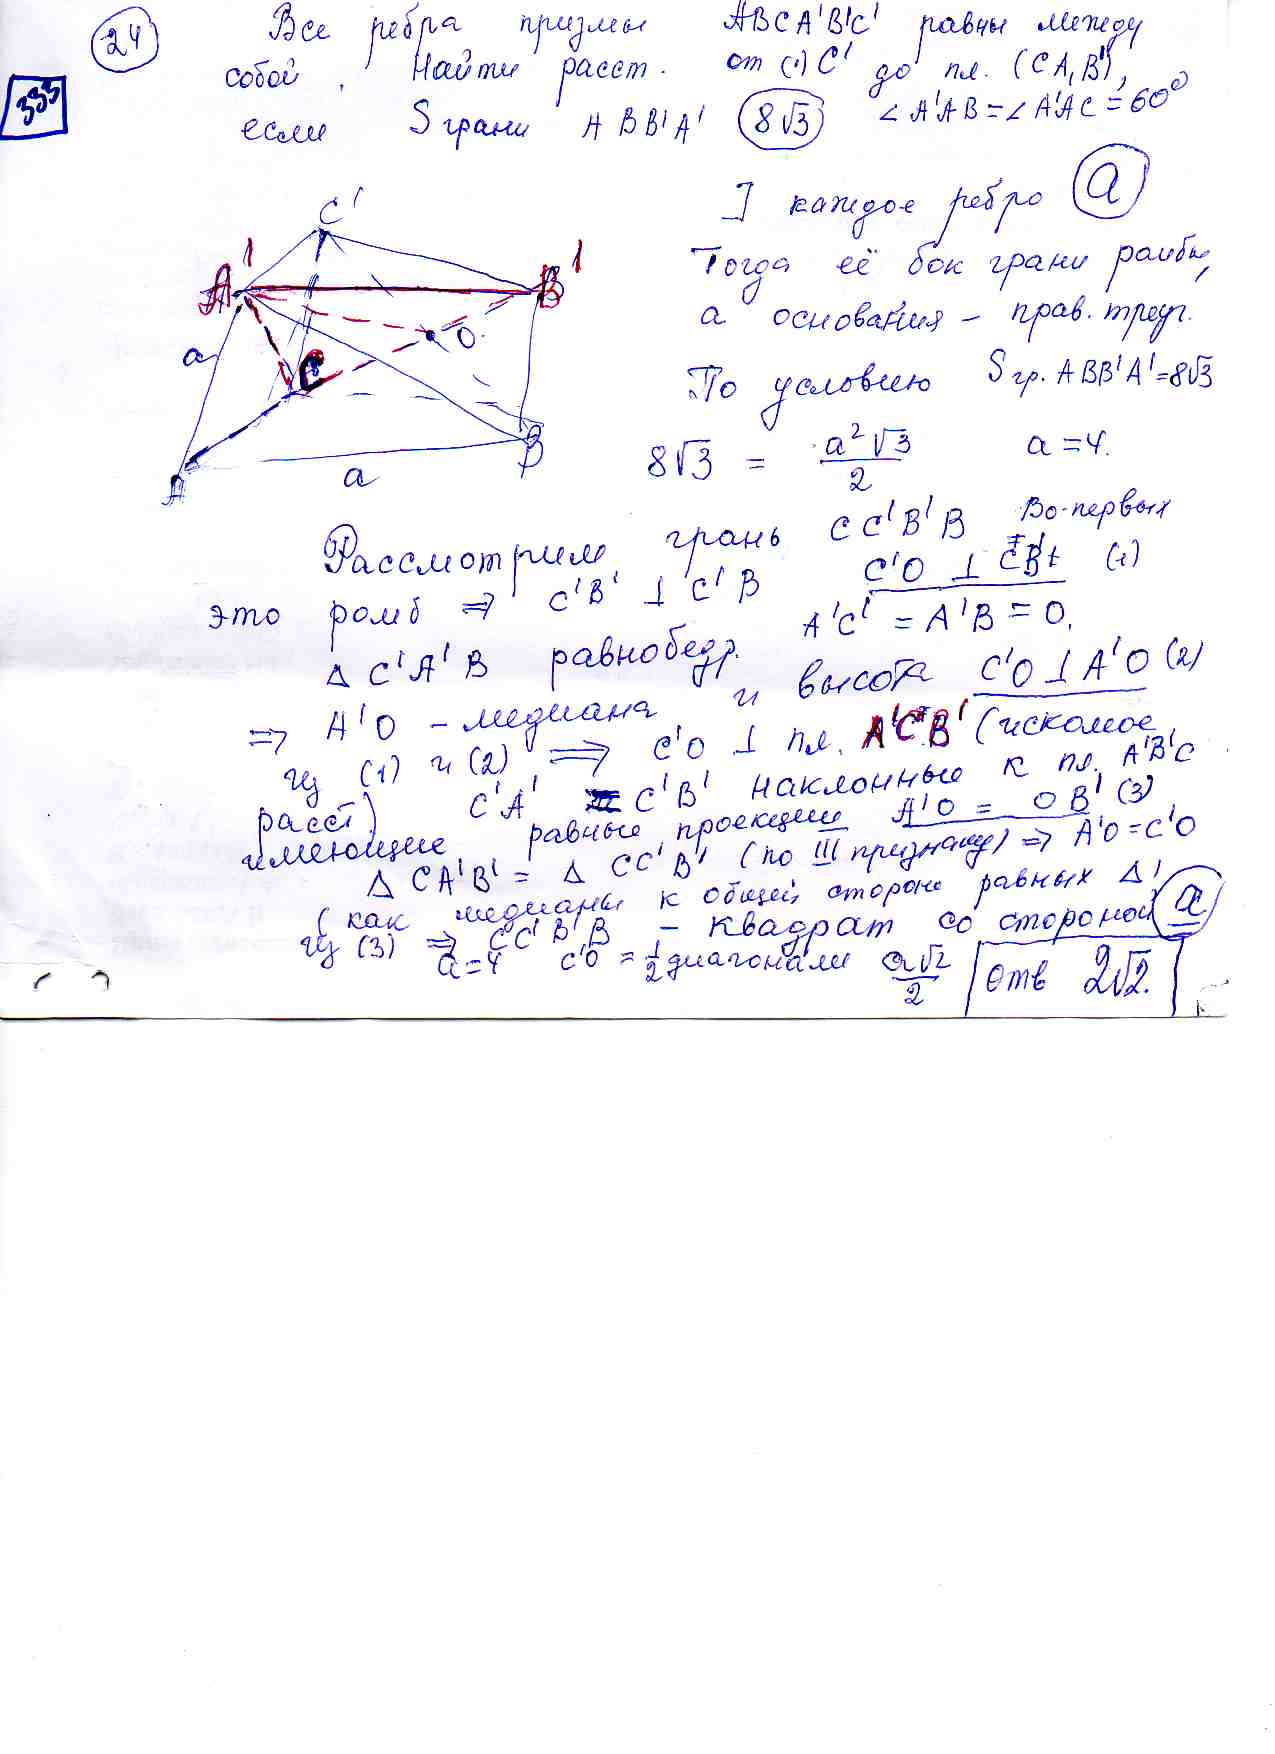 24
Все ребра призмы ABCA'B'C' равны между
собой, Найти расст. от (·) C' до пл. (CA,B'),
335
если S грани ABB'A' 8√3 ∠A'AB=∠A'AC=60°
C'
A'
B'
O
C
a
A
a
B
] каждое ребро a
Тогда её бок грани ромбы,
а основания – прав. треуг.
По условию S гр. ABB'A'=8√3
8√3 = a²√3/2 a=4.
Рассмотрим грань CC'B'B Во-первых
это ромб ⇒ C'B' ⊥ C'B C'O ⊥ CB' (1)
Δ C'A'B равнобедр. A'C' = A'B = a,
⇒ A'O – медиана и высота C'O ⊥ A'O (2)
из (1) и (2) ⇒ C'O ⊥ пл. A'C'B' (искомое
расст) C'A' C'B' наклонные к пл. A'B'C
имеющие равные проекции A'O = OB' (3)
Δ CA'B' = Δ CC'B' (по III признаку) ⇒ A'O=C'O
(как медианы к общей стороне равных Δ)
из (3) ⇒ CC'B'B – квадрат со стороной a
a=4 C'O = 1/2 диагонали a√2/2 Отв 2√2.